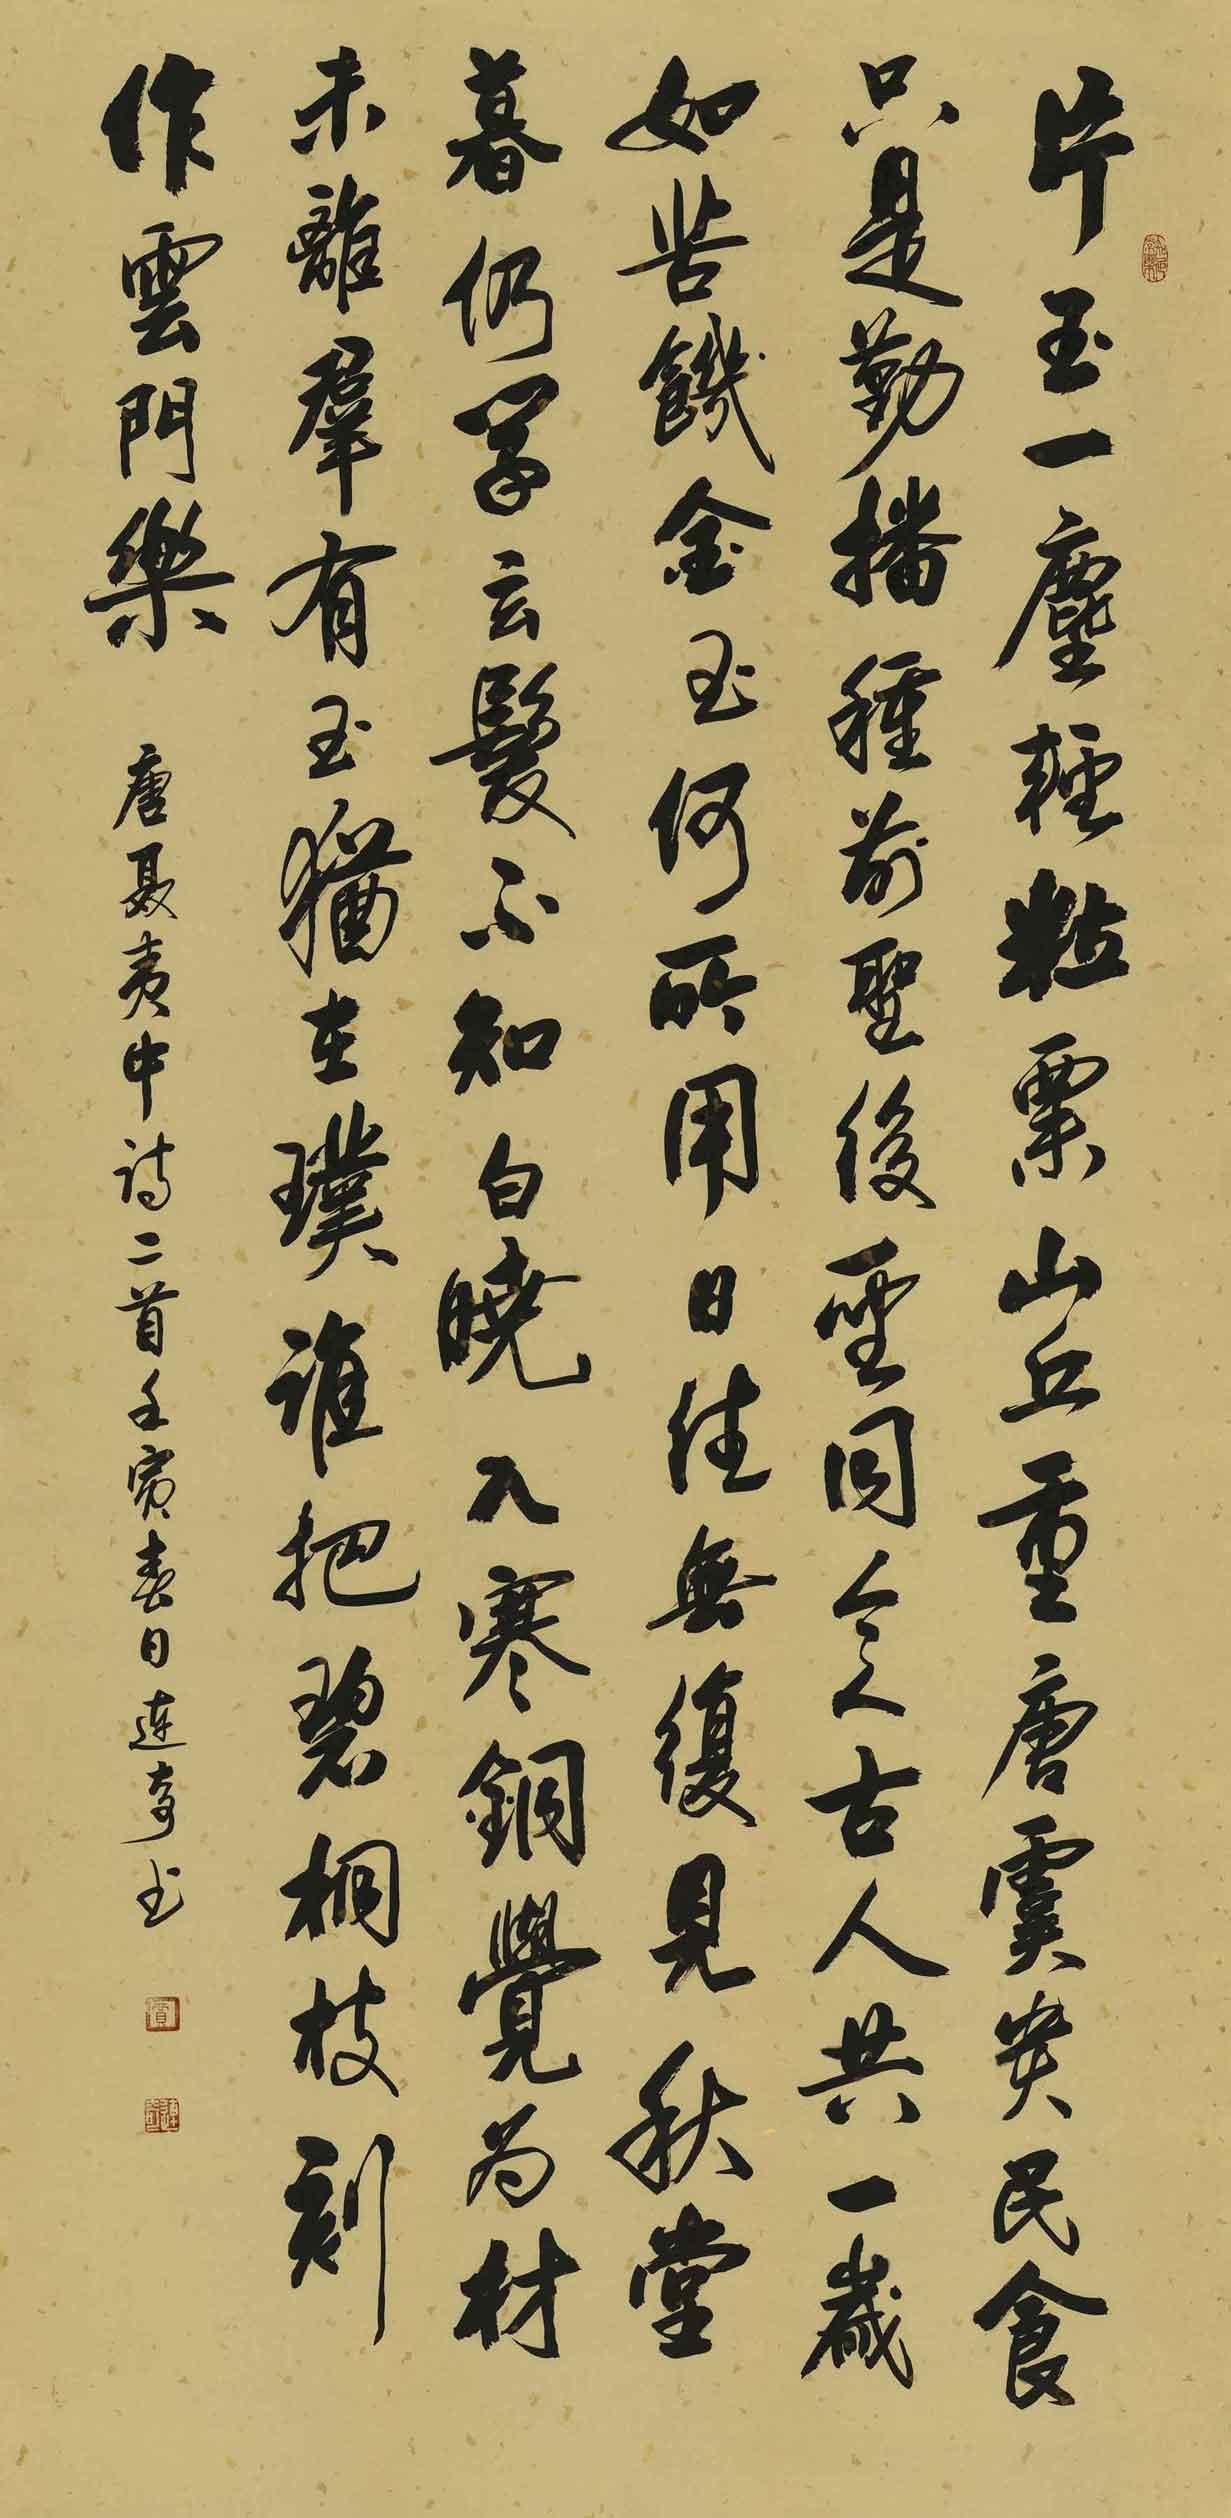 片玉一塵輕粒粟山丘重唐虞貴民食
只是勤播種前聖後聖同今人古人共一歲
如苦饑金玉何所用日往無復見秋堂
暮仍學玄髮不知白曉入寒銅覺為材
未離羣有玉猶在璞誰把碧桐枝刻
作雲門樂
唐聶夷中詩二首壬寅春日連奇书